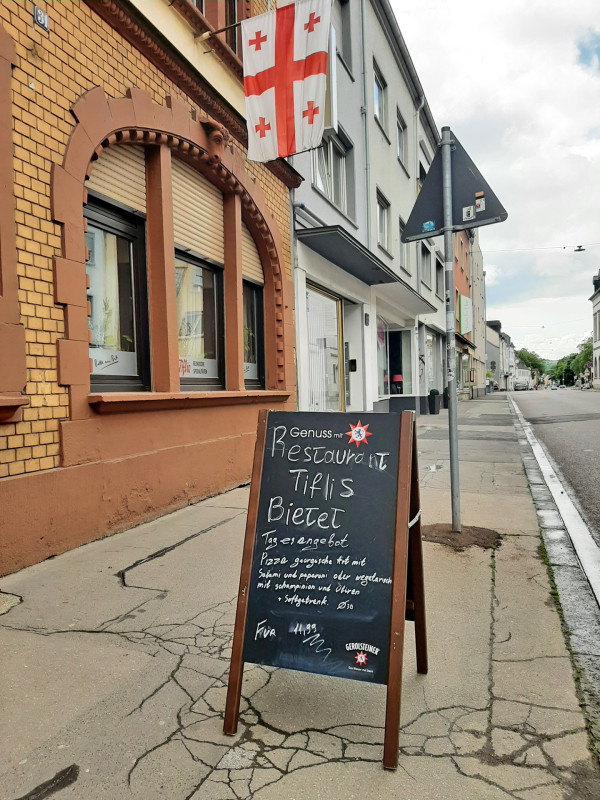 31
Genuss mit
Restaurant
Tiflis
Bietet
Tagesangebot
Pizza georgische Art mit
Salami und paparoni oder vegetarisch
mit schampinion und Oliven
+ Softgetränk. Ø30
Für 11,99
GEROLSTEINER